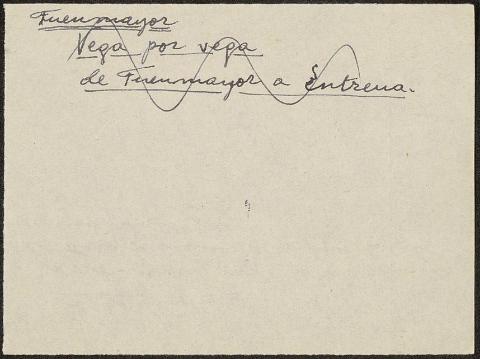 Fuenmayor
Vega por vega
de Fuenmayor a Entrena.